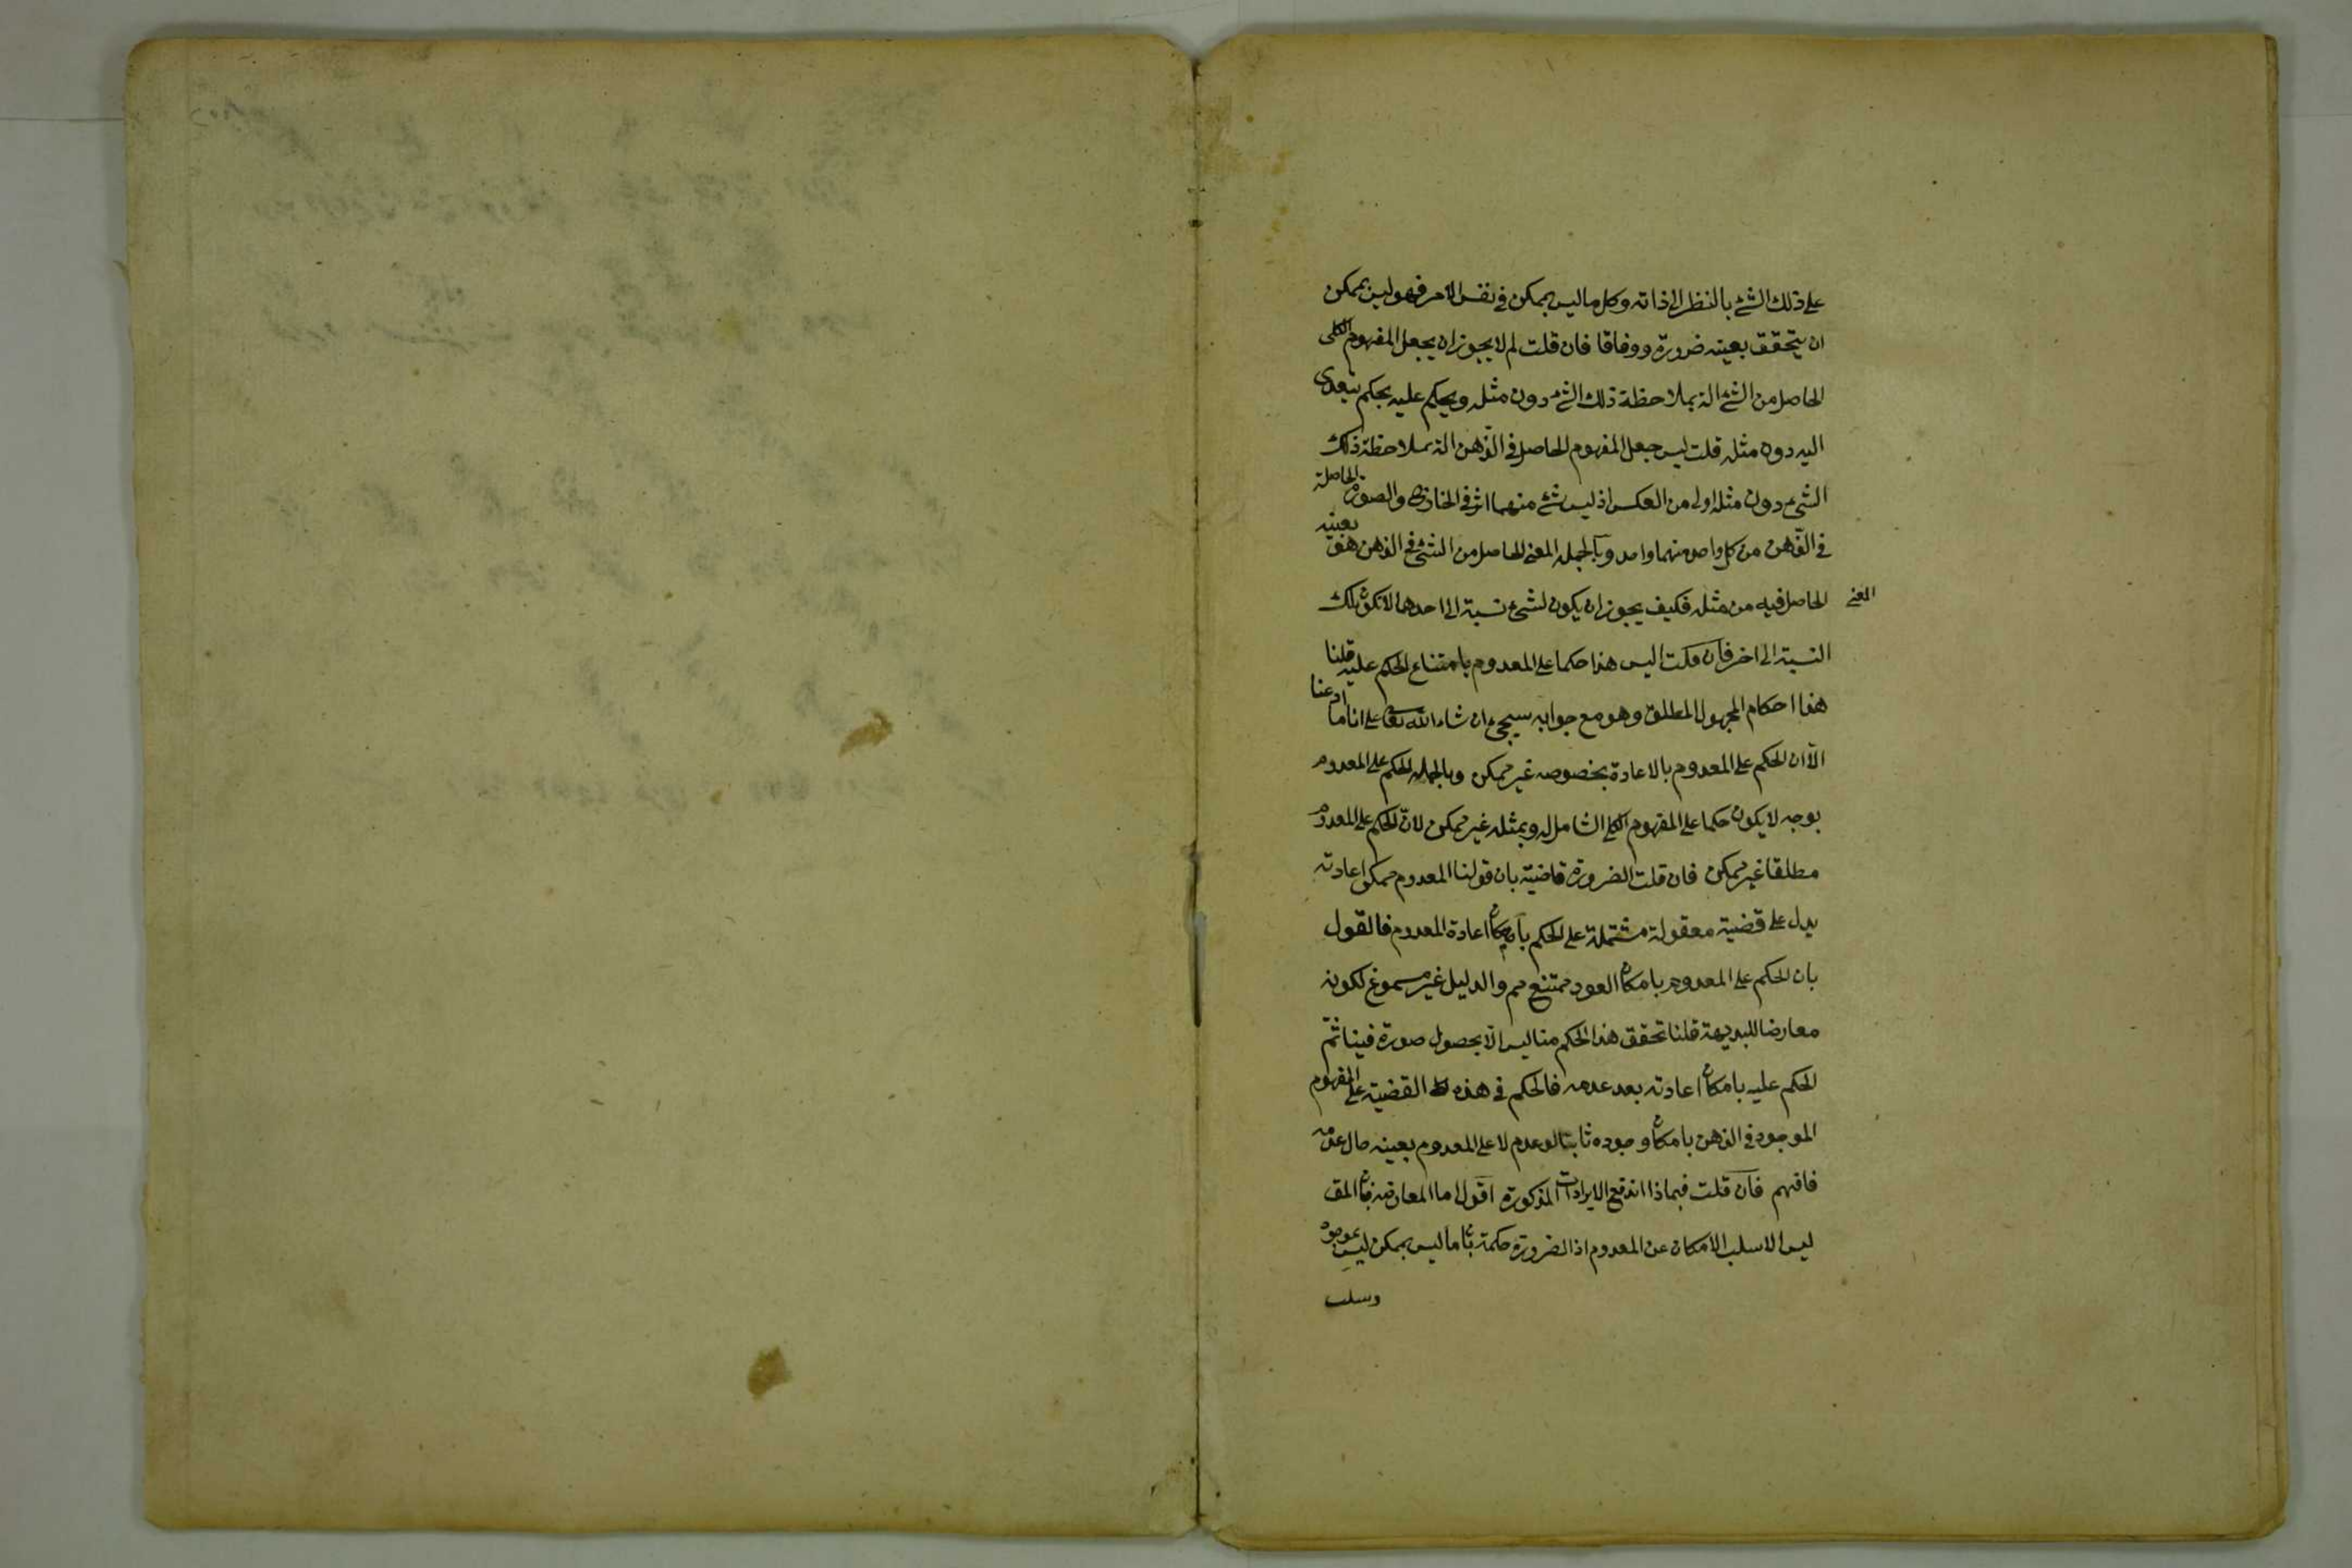 على ذلك الشئ بالنظر الى ذاته وكل ما ليس بممكن فى نفس الامر فهو ليس بممكن
ان يتحقق بعينه ضرورة ووفاقا فان قلت لم لا يجوز ان يجعل المفهوم الكلى
الحاصل من الشئ الة بملاحظة ذلك الشئ دون مثله ويحكم عليه بحكم يتعدى
اليه دون مثله قلت ليس جعل المفهوم الحاصل فى الذهن الة بملاحظة ذلك
الشئ دون مثله اولى من العكس اذ ليس شئ منهما اثر فى الخارج والصورة الحاصلة
فى الذهن من كل واحد منهما واحد وبالجملة المعنى الحاصل من الشئ فى الذهن هو بعينه
المعنى الحاصل فيه من مثله فكيف يجوز ان يكون لشئ نسبة الى احدهما لا تكون تلك
النسبة الى اخر فان قلت اليس هذا حكما على المعدوم بامتناع الحكم عليه قلنا
هذا احكام المجهول المطلق وهو مع جوابه سيجئ ان شاء الله تعا على انا ما ادعنا
الا ان الحكم على المعدوم بالاعادة بخصوصه غير ممكن وبالجملة الحكم على المعدوم
بوجه لا يكون حكما على المفهوم الكلى الشامل له وبمثله غير ممكن لان الحكم على المعدوم
مطلقا غير ممكن فان قلت الضرورة قاضية بان قولنا المعدوم ممكن اعادته
يدل على قضية معقولة مشتملة على الحكم بامكان اعادة المعدوم فالقول
بان الحكم على المعدوم بامكان العود ممتنع مم والدليل غير مسموع لكونه
معارضا للبديهة قلنا تحقق هذا الحكم منا ليس الا بحصول صورة فينا ثم
الحكم عليه بامكان اعادته بعد عدمه فالحكم فى هذه القضية على المفهوم
الموجود فى الذهن بامكان وجوده ثابتا لو عدم لا على المعدوم بعينه حال عدمه
فافهم فان قلت فبماذا اندفع الايرادات المذكورة اقول اما المعارضة فان المق
ليس الا سلب الامكان عن المعدوم اذ الضرورة حكمة بان ما ليس بممكن ليس بموجود
وسلب